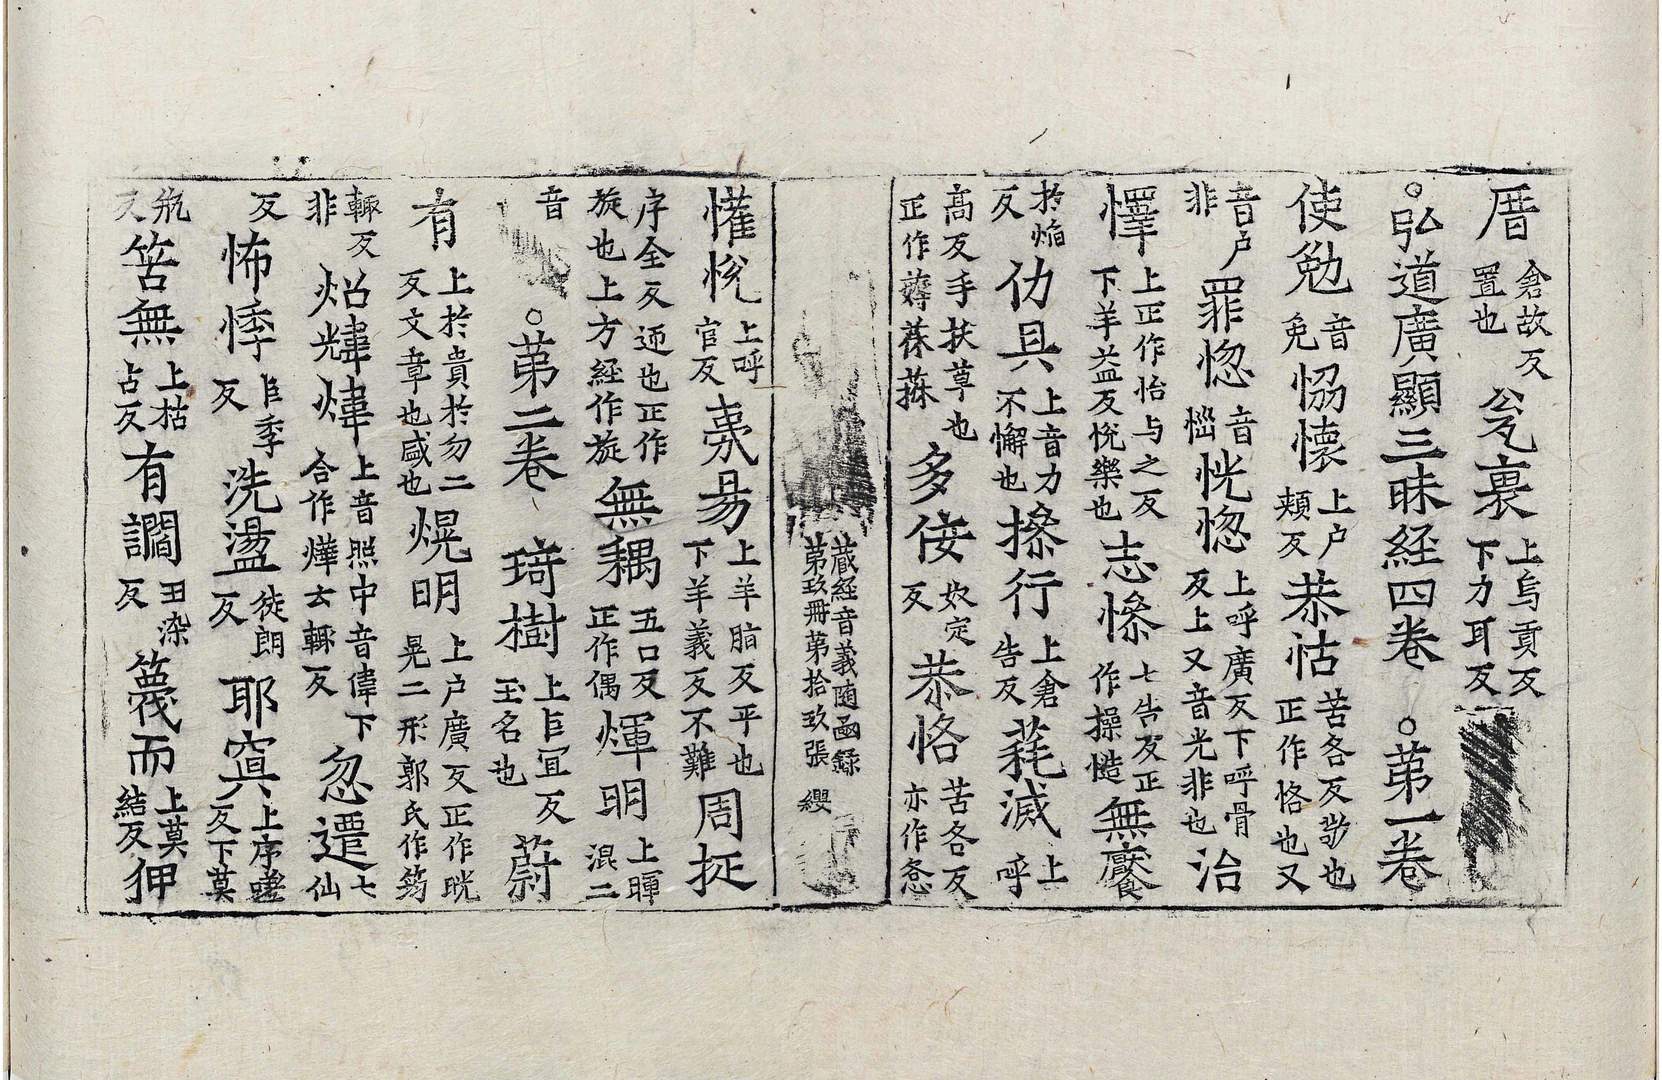 厝倉故反置也瓮裏上烏貢反下力耳反
○弘道廣顯三昧経四卷○第一卷
使勉音免恊懷上户頬反恭怙苦各反㔟也正作恪也又
音户非罪惚音㥾恍惚上呼廣反下呼骨反上又音光非也治
懌上正作怡与之反下羊益反悅樂也志慘七告反正作操慥無饜
於焰反仂具上音力不懈也撡行上倉告反薧滅上呼
高反手扶草也正作薅茠䔳多侫奴定反恭恪苦各反亦作愙
蔵経音義随函録
第玖冊第拾玖張 纓
懽悅上呼官反夷易上羊脂反平也下羊義反不難周㧒
序全反迊也正作旋也上方経作旋無耦五口反正作偶煇明上暉混二
音○第二卷琦樹上巨冝反玉名也蔚
有上於貴於勿二反文章也咸也熀明上户廣反正作晄晃二形郭氏作筠
輙反非炤煒㷸上音照中音偉下合作燁云輙反忽遷七仙
反怖悸巨季反洗盪徒朗反耶㝠上序嗟反下莫
瓶反笘無上枯占反有讇丑染反篾而上莫結反狎